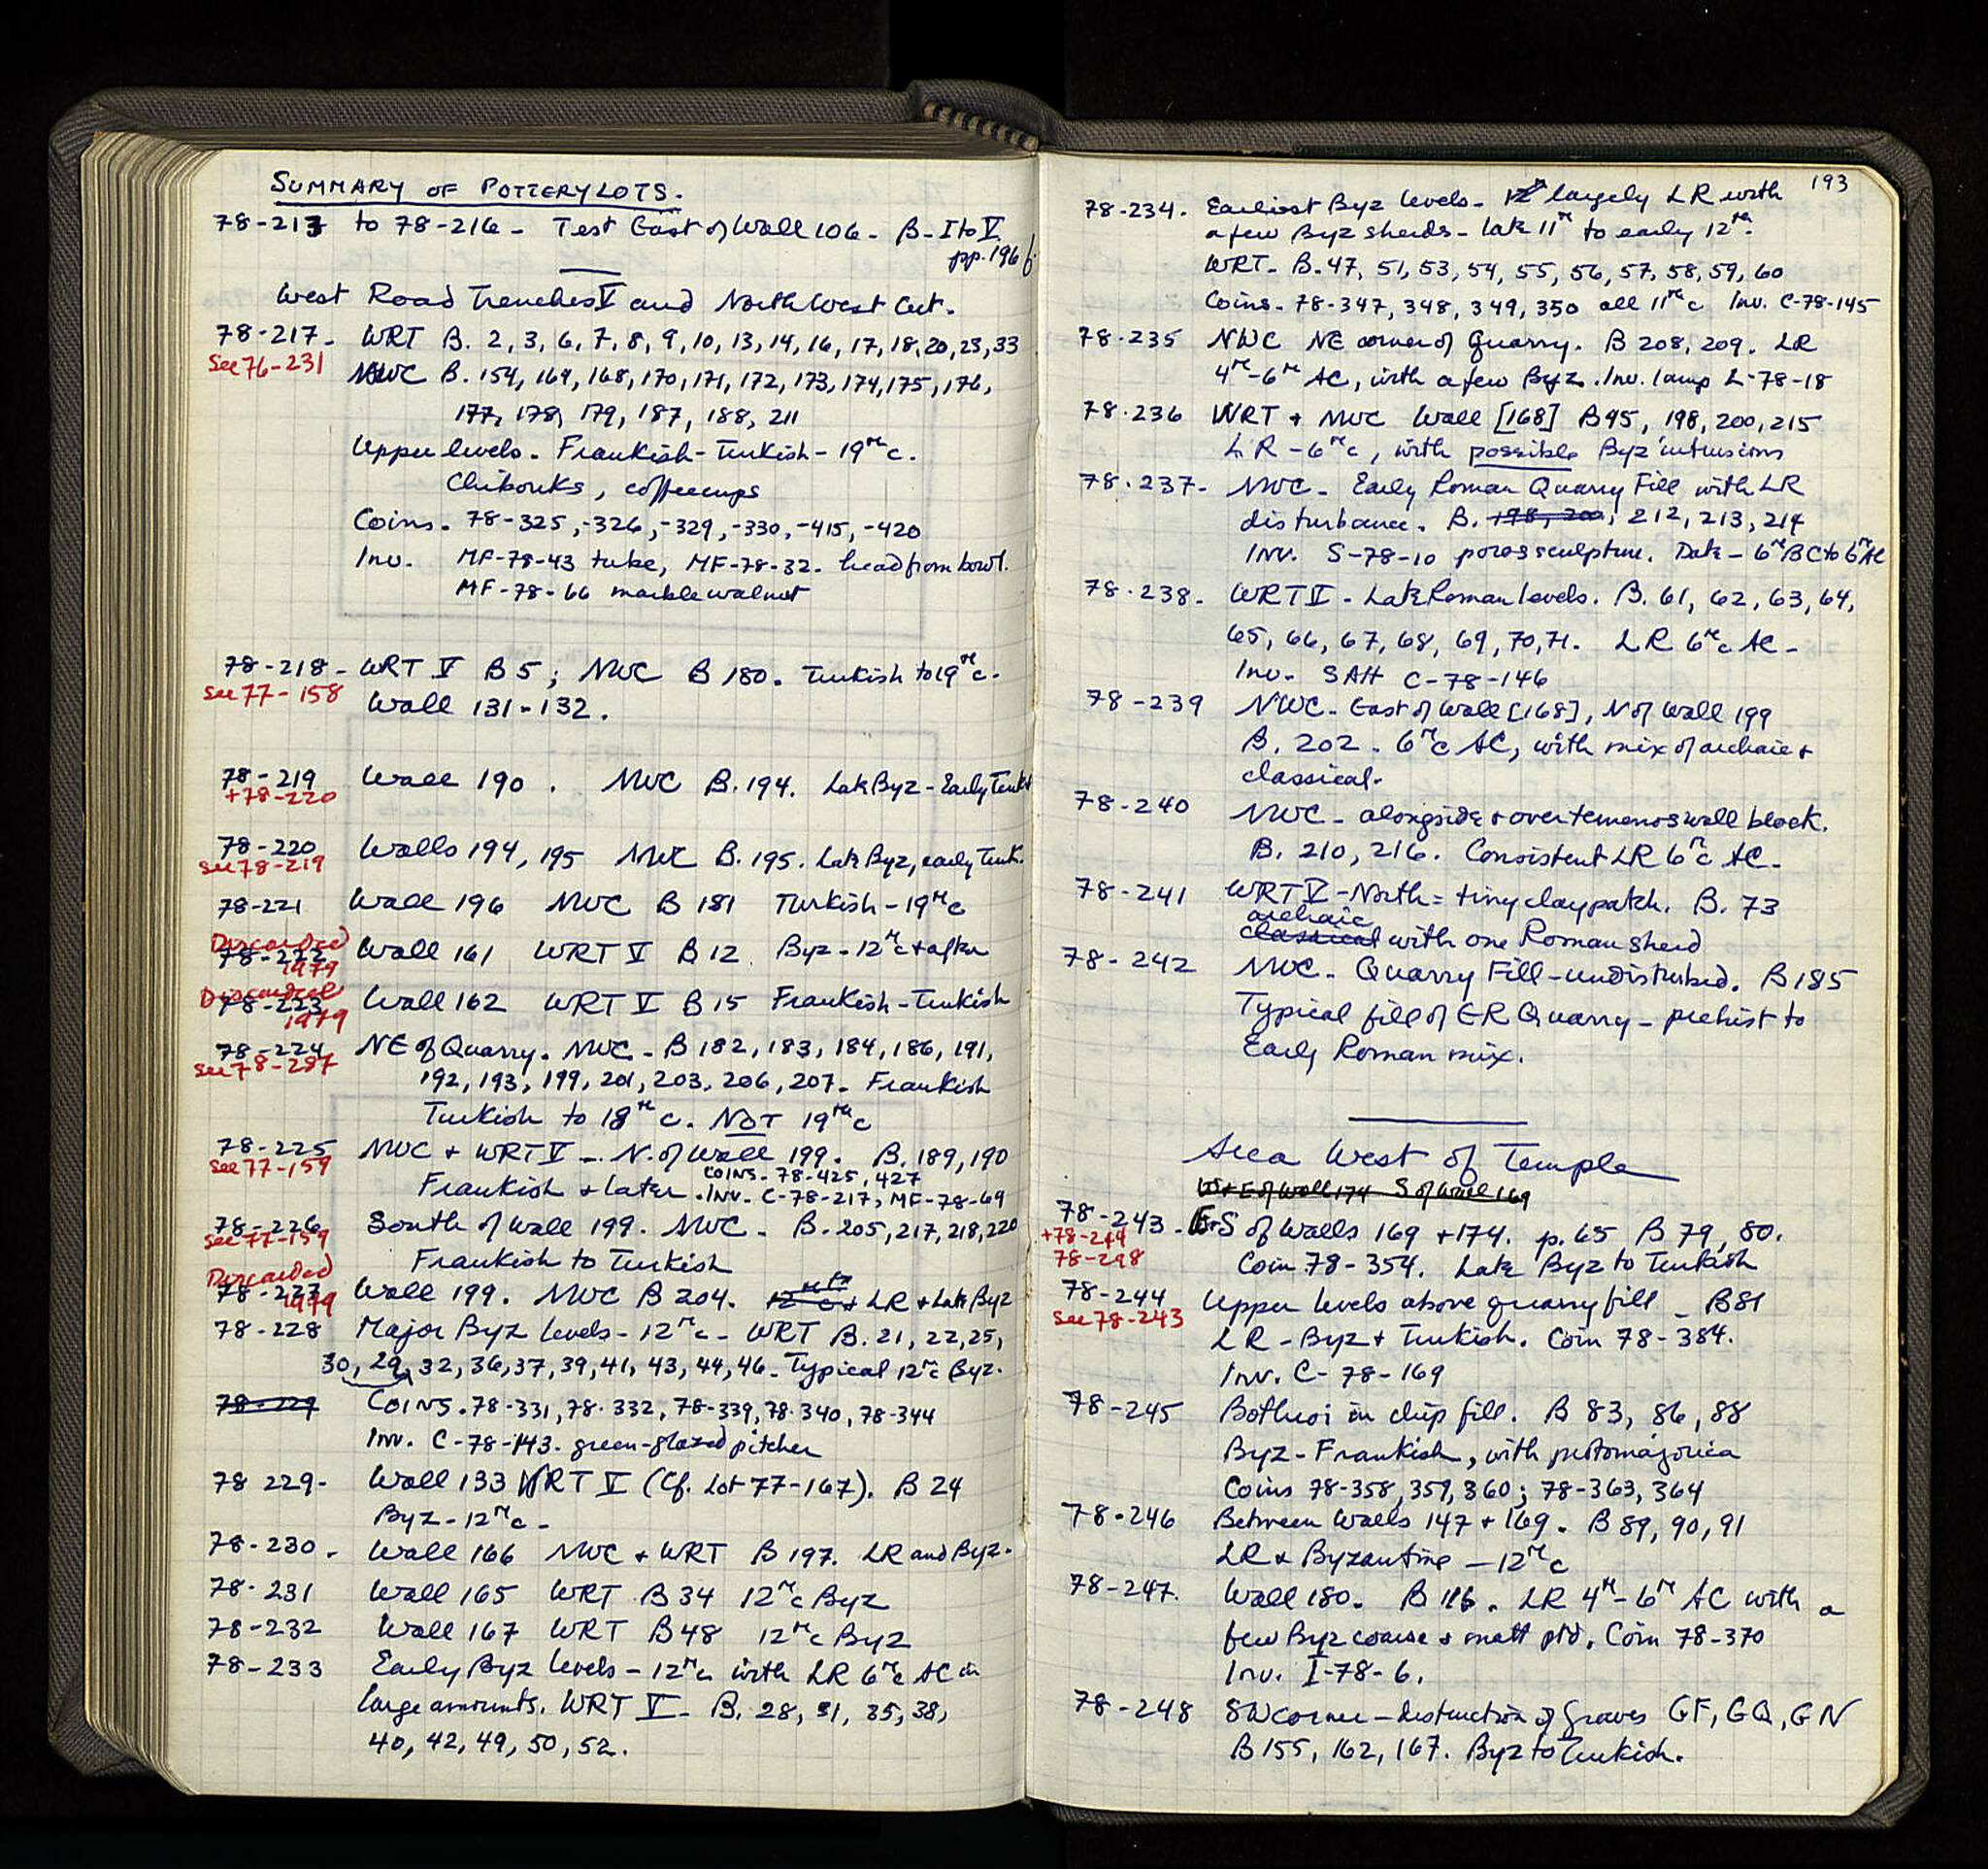 SUMMARY OF POTTERY LOTS.
78-213 to 78-216 - Test East of Wall 106 - B. I to V
pp. 196 f.
West Road Trenches V and North West Cut.
78-217 - WRT B. 2, 3, 6, 7, 8, 9, 10, 13, 14, 16, 17, 18, 20, 23, 33
See 76-231
NWC B. 154, 169, 168, 170, 171, 172, 173, 174, 175, 176,
177, 178, 179, 187, 188, 211
Upper levels - Frankish-Turkish - 19th c.
Chibouks, coffeecups
Coins. 78-325, -326, -329, -330, -415, -420
Inv. MF-78-43 tube, MF-78-32 - head from bowl.
MF-78-66 marble walnut
78-218 - WRT V B 5; NWC B 180. Turkish to 19th c.
See 77-158
Wall 131-132.
78-219 Wall 190. NWC B. 194. Late Byz - Early Turk
+78-220
78-220 Walls 194, 195 NWC B. 195. Late Byz, early Turk.
See 78-219
78-221 Wall 196 NWC B 181 Turkish - 19th c
Discarded 1979
78-222 Wall 161 WRT V B 12 Byz - 12th c + after
Discarded 1979
78-223 Wall 162 WRT V B 15 Frankish-Turkish
78-224 NE of Quarry. NWC - B 182, 183, 184, 186, 191,
See 78-287
192, 193, 199, 201, 203, 206, 207. Frankish
Turkish to 18th c. NOT 19th c
78-225 NWC + WRT V - N. of Wall 199. B. 189, 190
See 77-159
COINS - 78-425, 427
Frankish & later. INV. C-78-217, MF-78-69
78-226 South of Wall 199. NWC - B. 205, 217, 218, 220
See 77-159
Frankish to Turkish
Discarded 1979
78-227 Wall 199. NWC B 204. LR + Late Byz
78-228 Major Byz levels - 12th c - WRT B. 21, 22, 25,
30, 29, 32, 36, 37, 39, 41, 43, 44, 46 - Typical 12th c Byz.
78-229 COINS. 78-331, 78-332, 78-339, 78-340, 78-344
Inv. C-78-143 - green-glazed pitcher
78 229 - Wall 133 WRT V (Cf. Lot 77-167). B 24
Byz - 12th c -
78-230 - Wall 166 NWC + WRT B 197. LR and Byz.
78-231 Wall 165 WRT B 34 12th c Byz
78-232 Wall 167 WRT B 48 12th c Byz
78-233 Early Byz levels - 12th c with LR 6th c AC in
large amounts. WRT V - B. 28, 31, 35, 38,
40, 42, 49, 50, 52.
193
78-234. Earliest Byz levels - largely LR with
a few Byz sherds - late 11th to early 12th.
WRT - B. 47, 51, 53, 54, 55, 56, 57, 58, 59, 60
Coins - 78-347, 348, 349, 350 all 11th c Inv. C-78-145
78-235 NWC NE corner of Quarry. B 208, 209. LR
4th-6th AC, with a few Byz. Inv. lamp L-78-18
78-236 WRT + NWC Wall [168] B 95, 198, 200, 215
LR - 6th c, with possible Byz intrusions
78-237 - NWC - Early Roman Quarry Fill with LR
disturbance. B. 198, 200, 212, 213, 214
INV. S-78-10 poros sculpture. Date - 6th BC to 6th AC
78-238 - WRT V - Late Roman levels. B. 61, 62, 63, 64,
65, 66, 67, 68, 69, 70, 71. LR 6th c AC -
Inv. SAH C-78-146
78-239 NWC - East of Wall [168], N of Wall 199
B. 202 - 6th c AC, with mix of archaic +
classical.
78-240 NWC - alongside + over temenos wall block.
B. 210, 216. Consistent LR 6th c AC -
78-241 WRT V - North = tiny clay patch. B. 73
archaic
classical with one Roman sherd
78-242 NWC - Quarry Fill - undisturbed. B 185
Typical fill of ER Quarry - prehist to
Early Roman mix.
Area West of Temple
W + E of Wall 174 S of Wall 169
78-243 - E + S of Walls 169 + 174. p. 65 B 79, 80.
+78-244
78-298
Coin 78-354. Late Byz to Turkish
78-244 Upper levels above quarry fill - B 81
See 78-243
LR - Byz + Turkish. Coin 78-384.
Inv. C-78-169
78-245 Bothroi in chip fill. B 83, 86, 88
Byz - Frankish, with protomajolica
Coins 78-358, 359, 360; 78-363, 364
78-246 Between Walls 147 + 169. B 89, 90, 91
LR & Byzantine - 12th c
78-247. Wall 180. B 116. LR 4th-6th AC with a
few Byz coarse & matt ptd. Coin 78-370
Inv. I-78-6.
78-248 SW corner - destruction of Graves GF, GQ, GN
B 155, 162, 167. Byz to Turkish.